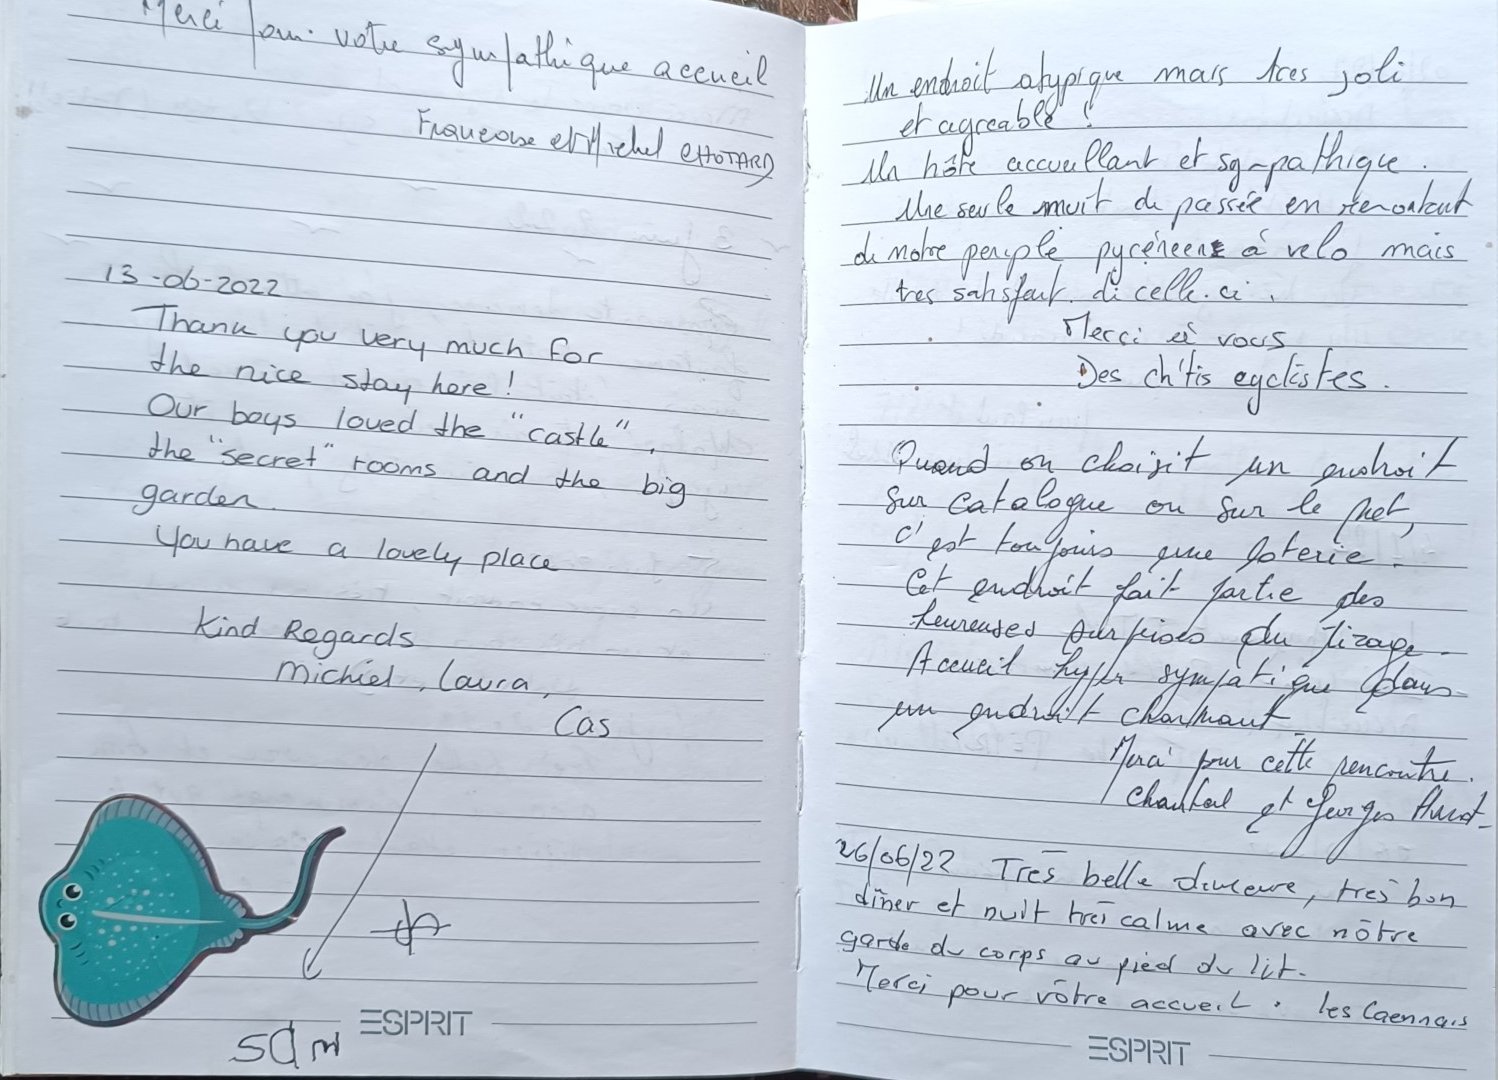 Merci pour votre sympathique accueil
Francoise et Michel CHOTARD
13-06-2022
Thank you very much for
the nice stay here!
Our boys loved the "castle",
the "secret" rooms and the big
garden.
You have a lovely place
Kind Regards
Michiel, Laura,
Cas
ESPRIT
Un endroit atypique mais tres joli
et agreable !
Un hôte accueillant et sympathique.
Une seule nuit de passée en remontant
de notre periple pyrénéens à velo mais
tres satisfait de celle-ci.
Merci à vous
Des ch'tis cyclistes.
Quand on choisit un endroit
sur catalogue ou sur le net,
c'est toujours une loterie.
Cet endroit fait partie des
heureuses surprises du tirage.
Accueil hyper sympatique dans
un endroit charmant
Merci pour cette rencontre.
Chantal et Georges
26/06/22 Très belle demeure, très bon
dîner et nuit très calme avec nôtre
garde du corps au pied du lit.
Merci pour vôtre accueil. les Caennais
ESPRIT